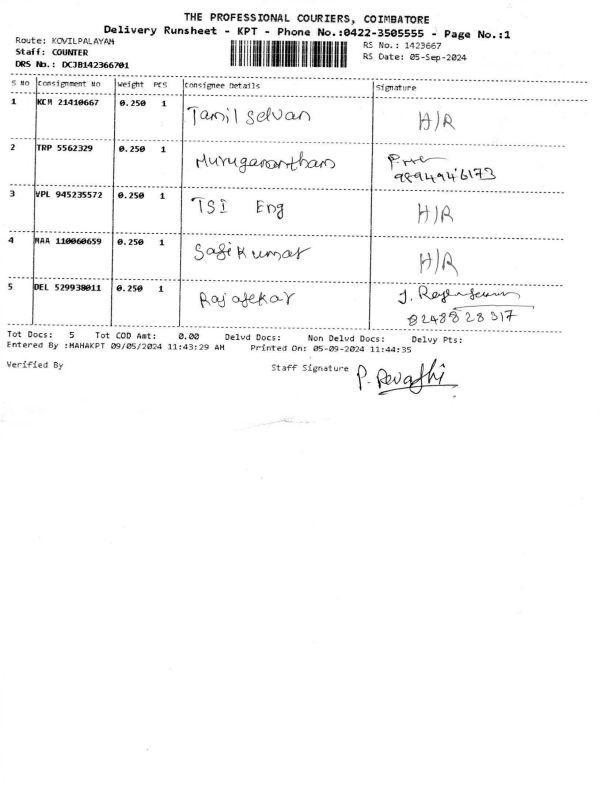 THE PROFESSIONAL COURIERS, COIMBATORE
Delivery Runsheet - KPT - Phone No.:0422-3505555 - Page No.:1
Route: KOVILPALAYAM
RS No.: 1423667
Staff: COUNTER
RS Date: 05-Sep-2024
DRS No.: DCJB142366701
S No Consignment No Weight PCS Consignee Details Signature
1 KCM 21410667 0.250 1 Tamil Selvan H/R
2 TRP 5562329 0.250 1 Muruganantham
9894946173
3 VPL 945235572 0.250 1 TSI Eng H/R
4 MAA 110060659 0.250 1 Sasikumar H/R
5 DEL 529938011 0.250 1 Rajasekar
8248828317
Tot Docs: 5 Tot COD Amt: 0.00 Delvd Docs: Non Delvd Docs: Delvy Pts:
Entered By :MAHAKPT 09/05/2024 11:43:29 AM Printed On: 05-09-2024 11:44:35
Verified By Staff Signature P. Revathi